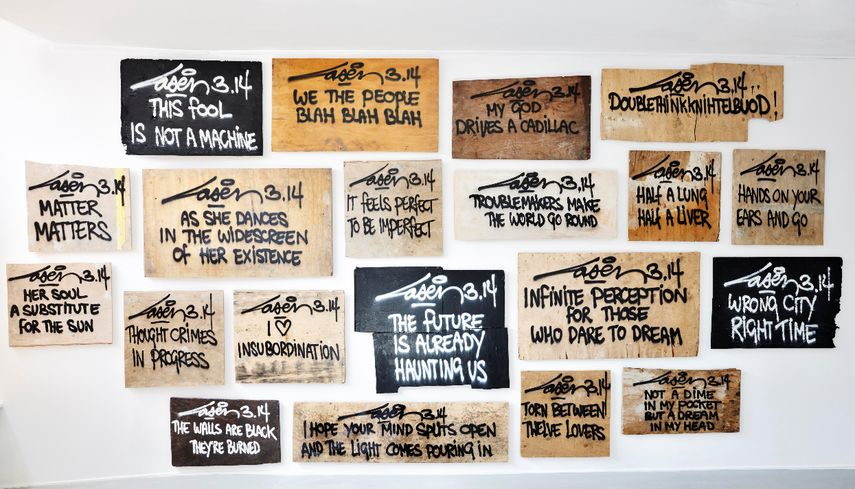 Laser 3.14
THIS FOOL
IS NOT A MACHINE
Laser 3.14
WE THE PEOPLE
BLAH BLAH BLAH
Laser 3.14
MY GOD
DRIVES A CADILLAC
Laser 3.14
DOUBLETHINKKNIHTELBUOD!
Laser 3.14
MATTER
MATTERS
Laser 3.14
AS SHE DANCES
IN THE WIDESCREEN
OF HER EXISTENCE
Laser 3.14
IT FEELS PERFECT
TO BE IMPERFECT
Laser 3.14
TROUBLEMAKERS MAKE
THE WORLD GO ROUND
Laser 3.14
HALF A LUNG
HALF A LIVER
Laser 3.14
HANDS ON YOUR
EARS AND GO
Laser 3.14
HER SOUL
A SUBSTITUTE
FOR THE SUN
Laser 3.14
THOUGHT CRIMES
IN PROGRESS
Laser 3.14
I ♡
INSUBORDINATION
Laser 3.14
THE FUTURE
IS ALREADY
HAUNTING US
Laser 3.14
INFINITE PERCEPTION
FOR THOSE
WHO DARE TO DREAM
Laser 3.14
WRONG CITY
RIGHT TIME
Laser 3.14
THE WALLS ARE BLACK
THEY'RE BURNED
Laser 3.14
I HOPE YOUR MIND SPLITS OPEN
AND THE LIGHT COMES POURING IN
Laser 3.14
TORN BETWEEN
TWELVE LOVERS
Laser 3.14
NOT A DIME
IN MY POCKET
BUT A DREAM
IN MY HEAD